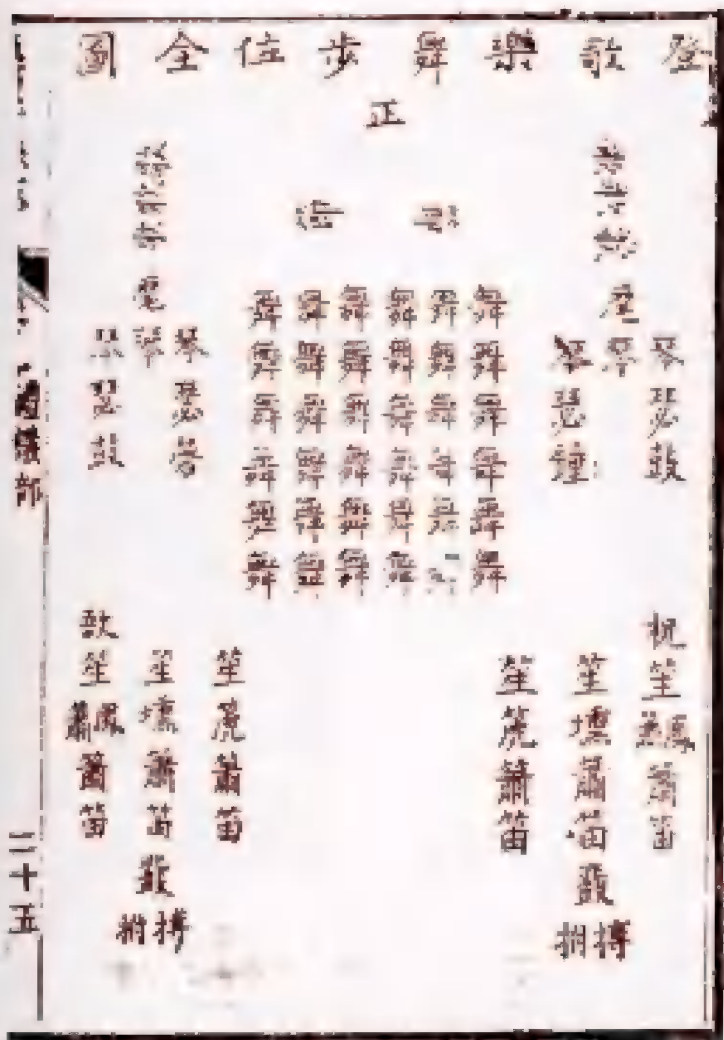 登歌樂舞步位全圖
正
麾
琴瑟鼓
琴
琴瑟鐘
舞舞舞舞舞舞
舞舞舞舞舞
舞舞舞舞舞舞
舞舞舞舞舞舞
舞舞舞舞舞舞
舞舞舞舞舞舞
麾
琴瑟
琴
琴瑟鼓
柷笙鳳簫簫笛
笙壎簫笛鼗
搏拊
笙篪簫笛
笙篪簫笛
笙壎簫笛鼗
搏拊
敔笙鳳簫簫笛
禮儀部
二十五